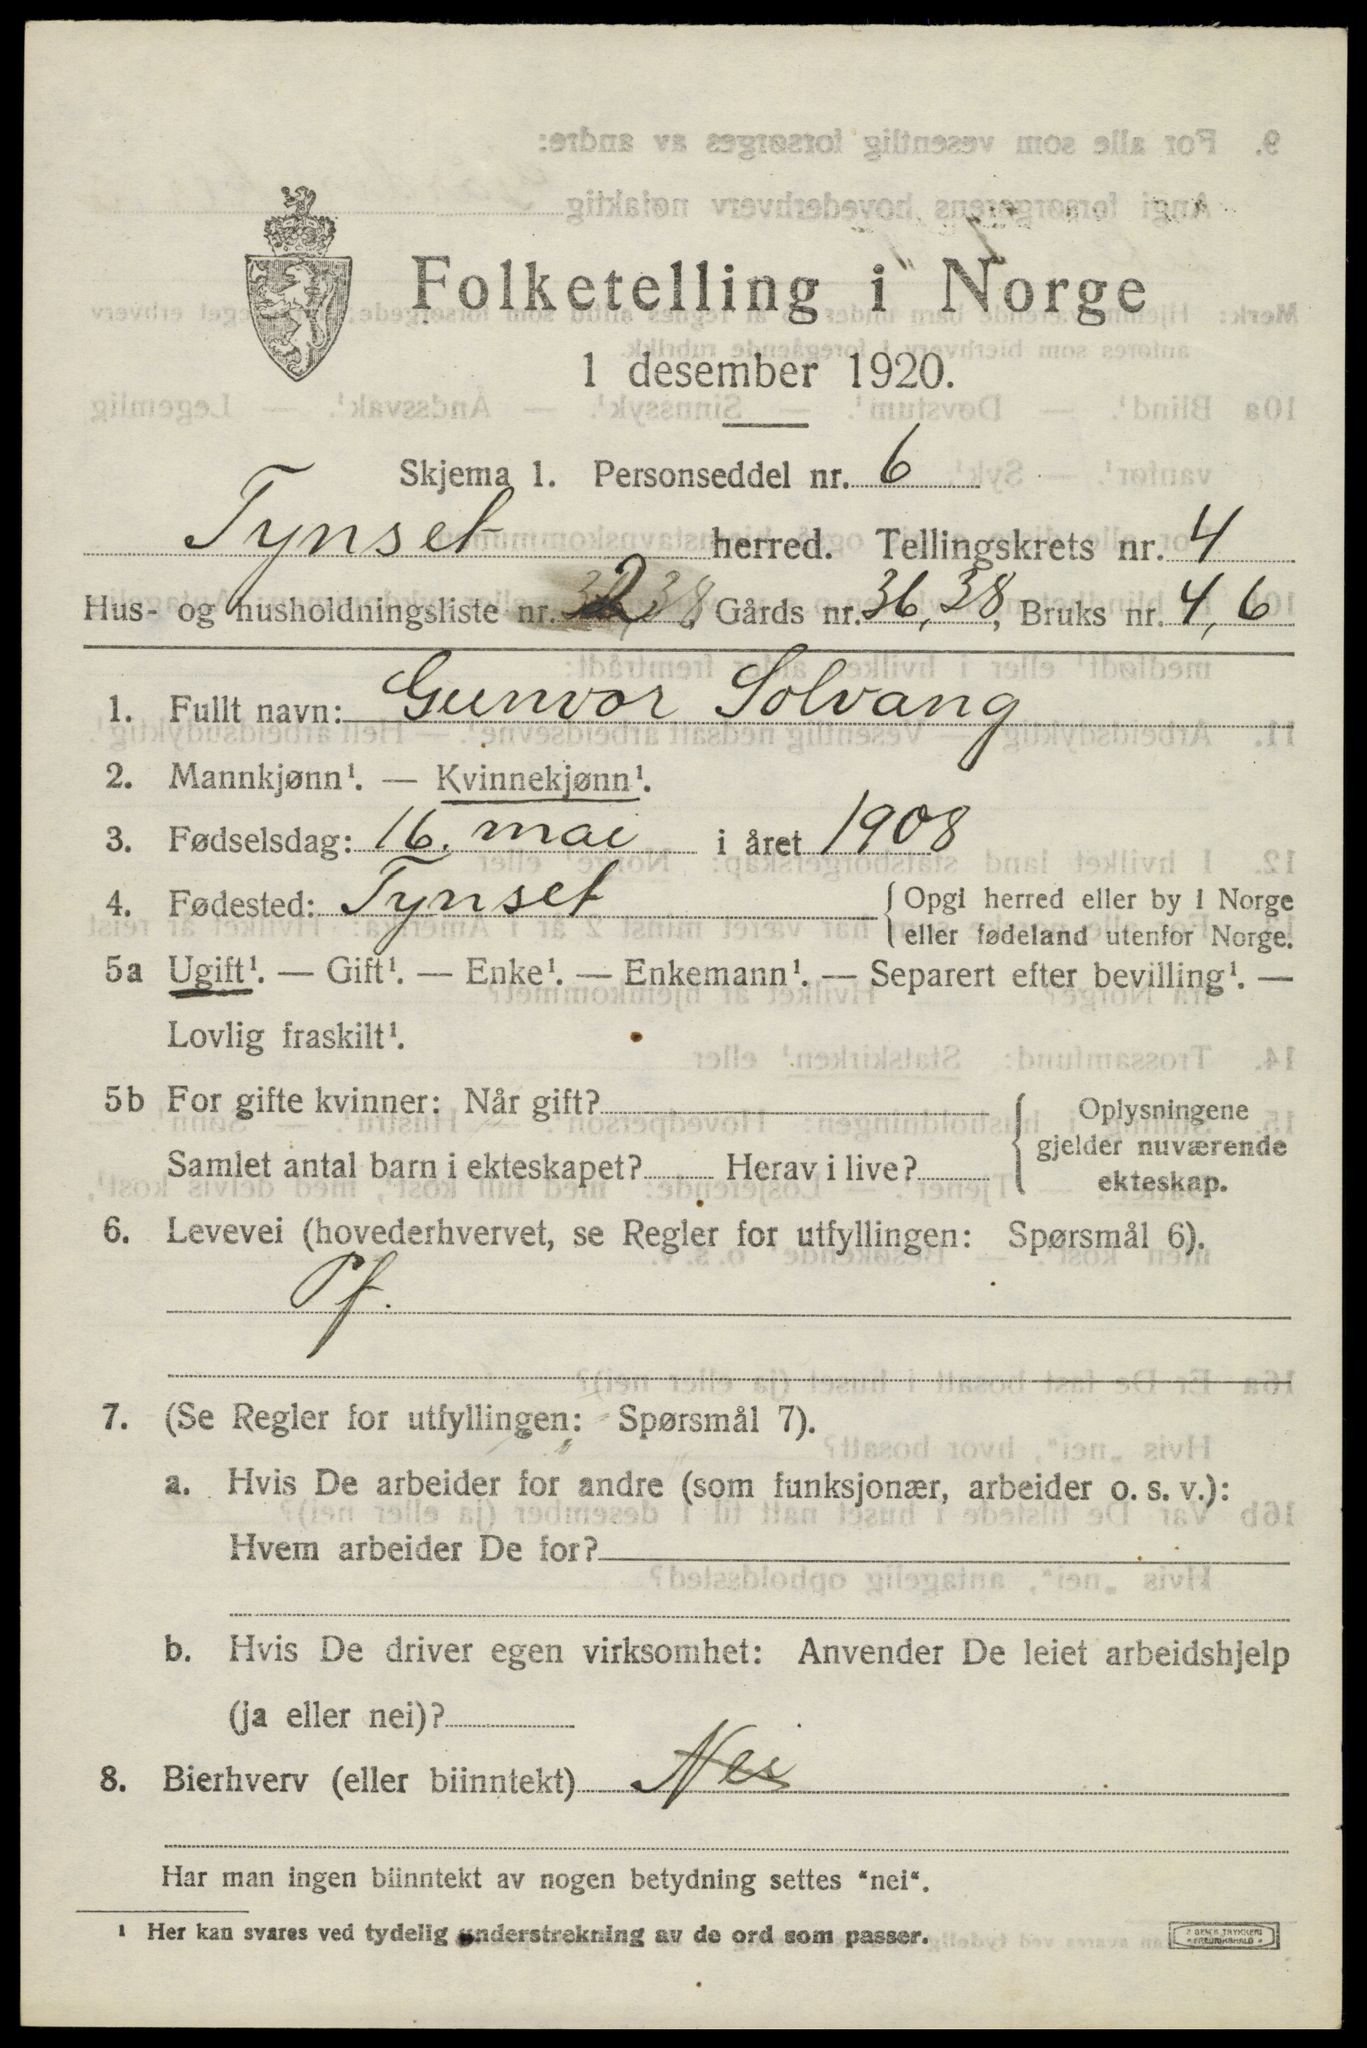 Folketelling i Norge
1 desember 1920.
Skjema 1. Personseddel nr. 6
Tynset herred. Tellingskrets nr. 4
Hus- og husholdningsliste nr. 2 Gårds nr. 36, 38, Bruks nr. 4, 6
1. Fullt navn: Gunvor Solvang
2. Mannkjønn¹. — Kvinnekjønn¹.
3. Fødselsdag: 16. mai i året 1908
4. Fødested: Tynset { Opgi herred eller by i Norge
eller fødeland utenfor Norge.
5a Ugift¹. — Gift¹. — Enke¹. — Enkemann¹. — Separert efter bevilling¹. —
Lovlig fraskilt¹.
5b For gifte kvinner: Når gift?
Samlet antal barn i ekteskapet? Herav i live?
{ Oplysningene
gjelder nuværende
ekteskap.
6. Levevei (hovederhvervet, se Regler for utfyllingen: Spørsmål 6).
Pf.
7. (Se Regler for utfyllingen: Spørsmål 7).
a. Hvis De arbeider for andre (som funksjonær, arbeider o. s. v.):
Hvem arbeider De for?
b. Hvis De driver egen virksomhet: Anvender De leiet arbeidshjelp
(ja eller nei)?
8. Bierhverv (eller biinntekt) Nei
Har man ingen biinntekt av nogen betydning settes “nei“.
¹ Her kan svares ved tydelig understrekning av de ord som passer.